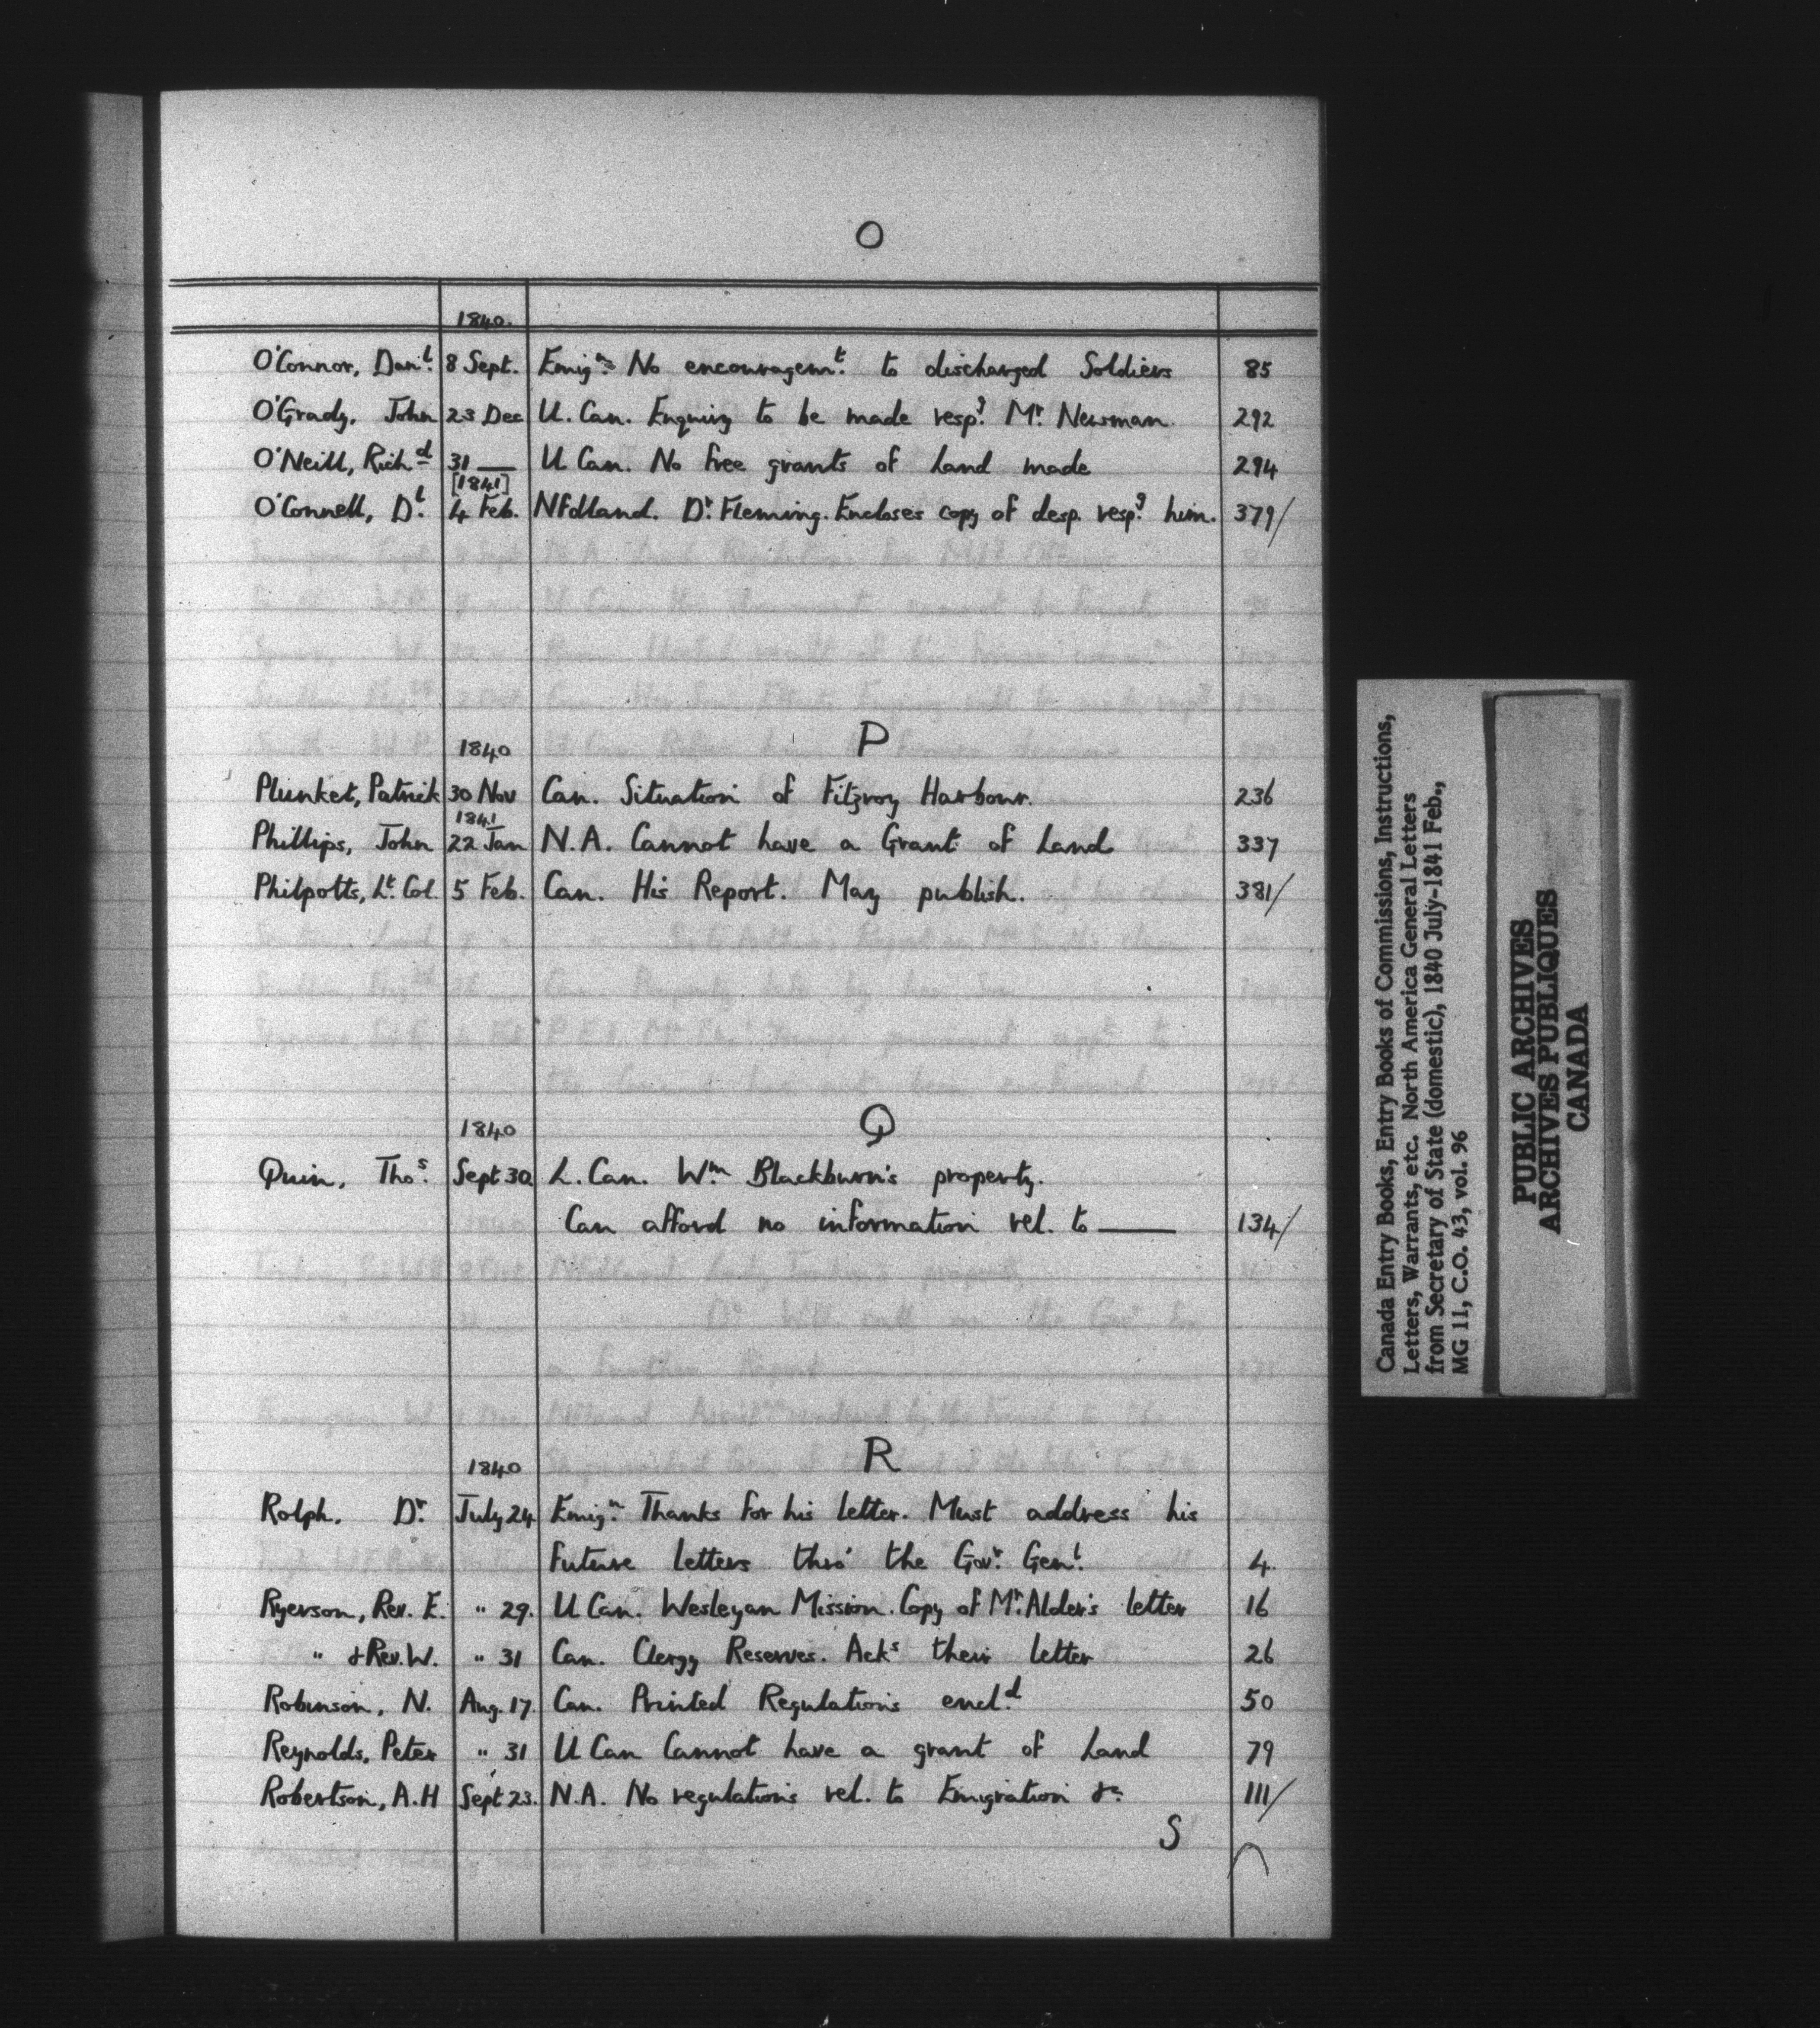 O
1840.
O'Connor, Danl. 8 Sept. Emign. No encouragemt. to discharged Soldiers 85
O'Grady, John 23 Dec U. Can. Enquiry to be made respg. Mr. Newman. 292
O'Neill, Richd 31 — U Can. No free grants of Land made 294
[1841]
O'Connell, Dl. 4 Feb. Nfdland. Dr. Fleming. Encloses copy of desp. respg. him. 379/
P
1840
Plunket, Patrick 30 Nov Can. Situation of Fitzroy Harbour. 236
1841
Phillips, John 22 Jan N.A. Cannot have a Grant of Land 337
Philpotts, Lt. Col. 5 Feb. Can. His Report. May publish. 381/
Q
1840
Quin, Thos. Sept 30 L. Can. Wm. Blackburn's property.
Can afford no information rel. to — 134/
R
1840
Rolph. Dr. July 24 Emign. Thanks for his letter. Must address his
future letters thro' the Govr. Genl. 4.
Ryerson, Rev. E. " 29. U Can. Wesleyan Mission. Copy of Mr. Alder's letter 16
" & Rev. W. " 31 Can. Clergy Reserves. Acks their letter 26
Robinson, N. Aug. 17. Can. Printed Regulations encld. 50
Reynolds, Peter " 31 U Can Cannot have a grant of Land 79
Robertson, A.H Sept 23. N.A. No regulations rel. to Emigration &c. 111/
S
Canada Entry Books, Entry Books of Commissions, Instructions,
Letters, Warrants, etc. North America General Letters
from Secretary of State (domestic), 1840 July-1841 Feb.,
MG 11, C.O. 43, vol. 96
PUBLIC ARCHIVES
ARCHIVES PUBLIQUES
CANADA